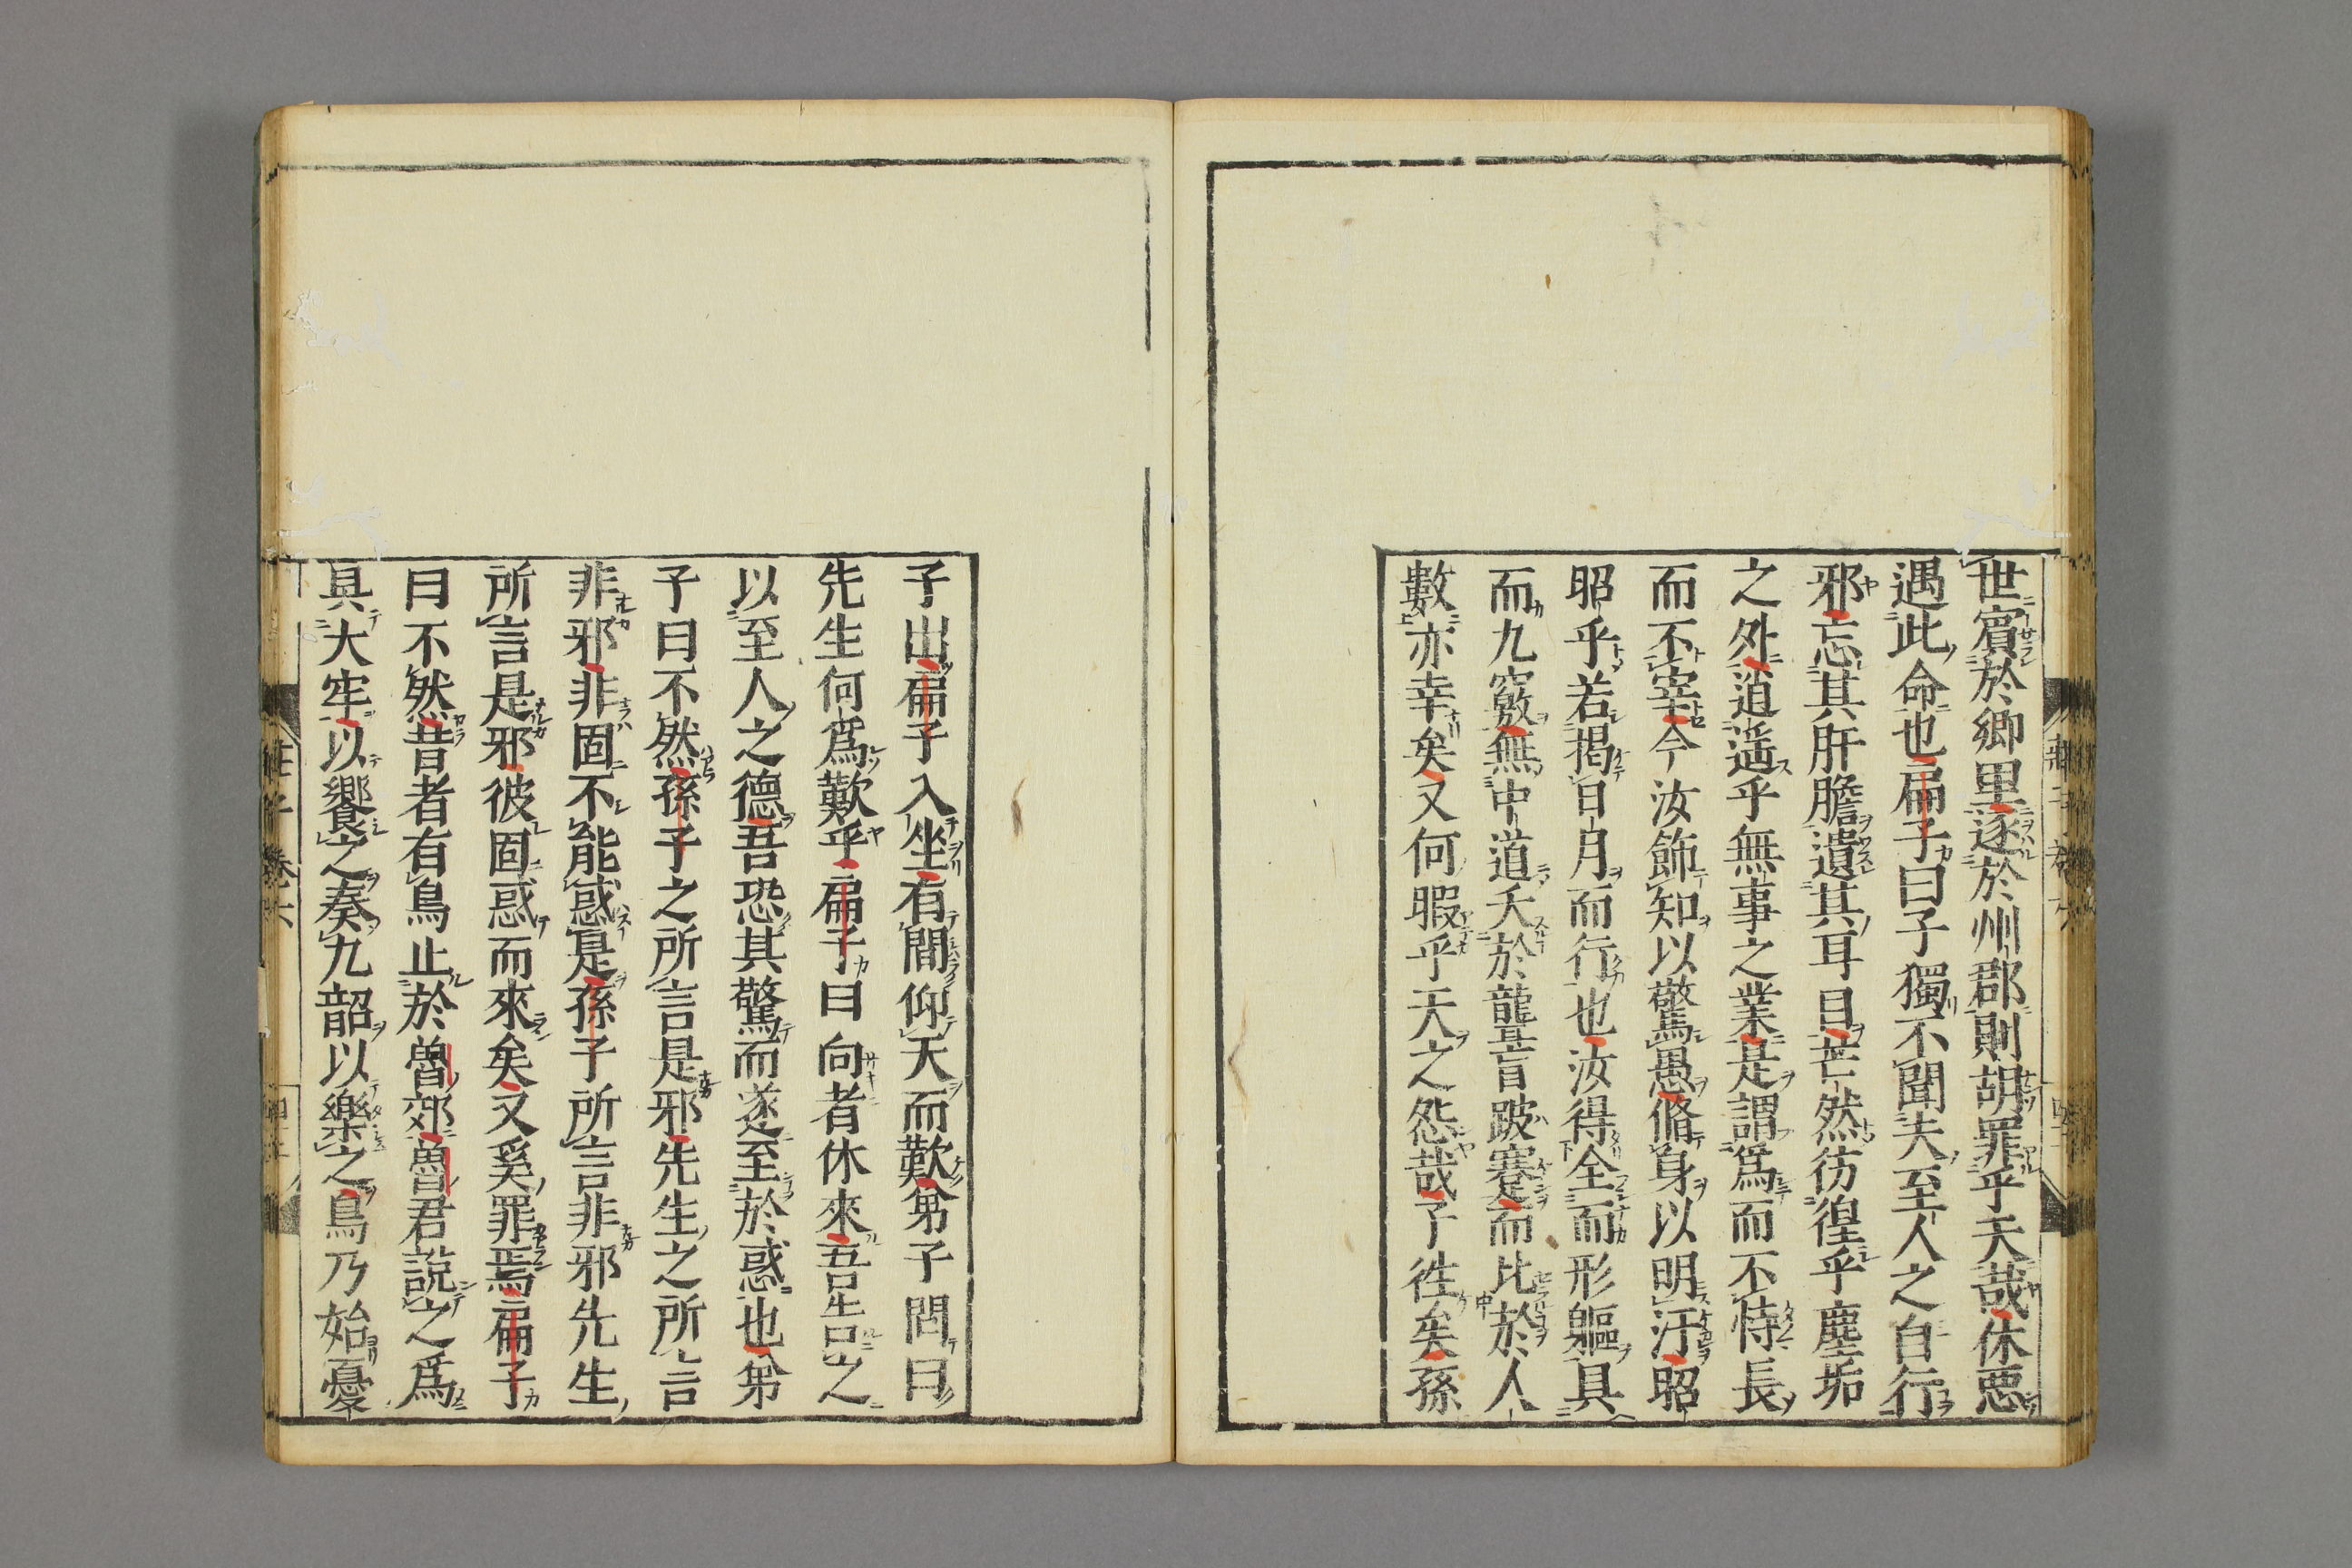 世賓於鄉里逐於州郡則胡罪乎天哉休惡
遇此命也扁子曰子獨不聞夫至人之自行
邪忘其肝膽遺其耳目芒然彷徨乎塵垢
之外逍遙乎無事之業是謂爲而不恃長
而不宰今汝飾知以驚愚脩身以明汙昭
昭乎若揭日月而行也汝得全而形軀具
而九竅無中道夭於聾盲跛蹇而比於人
數亦幸矣又何暇乎天之怨哉子徃矣孫
子出扁子入坐有間仰天而歎弟子問曰
先生何爲歎乎扁子曰向者休來吾告之
以至人之德吾恐其驚而遂至於惑也弟
子曰不然孫子之所言是邪先生之所言
非邪非固不能惑是孫子所言非邪先生
所言是邪彼固惑而來矣又奚罪焉扁子
曰不然昔者有鳥止於魯郊魯君說之爲
具大牢以饗之奏九韶以樂之鳥乃始憂
莊子 卷六